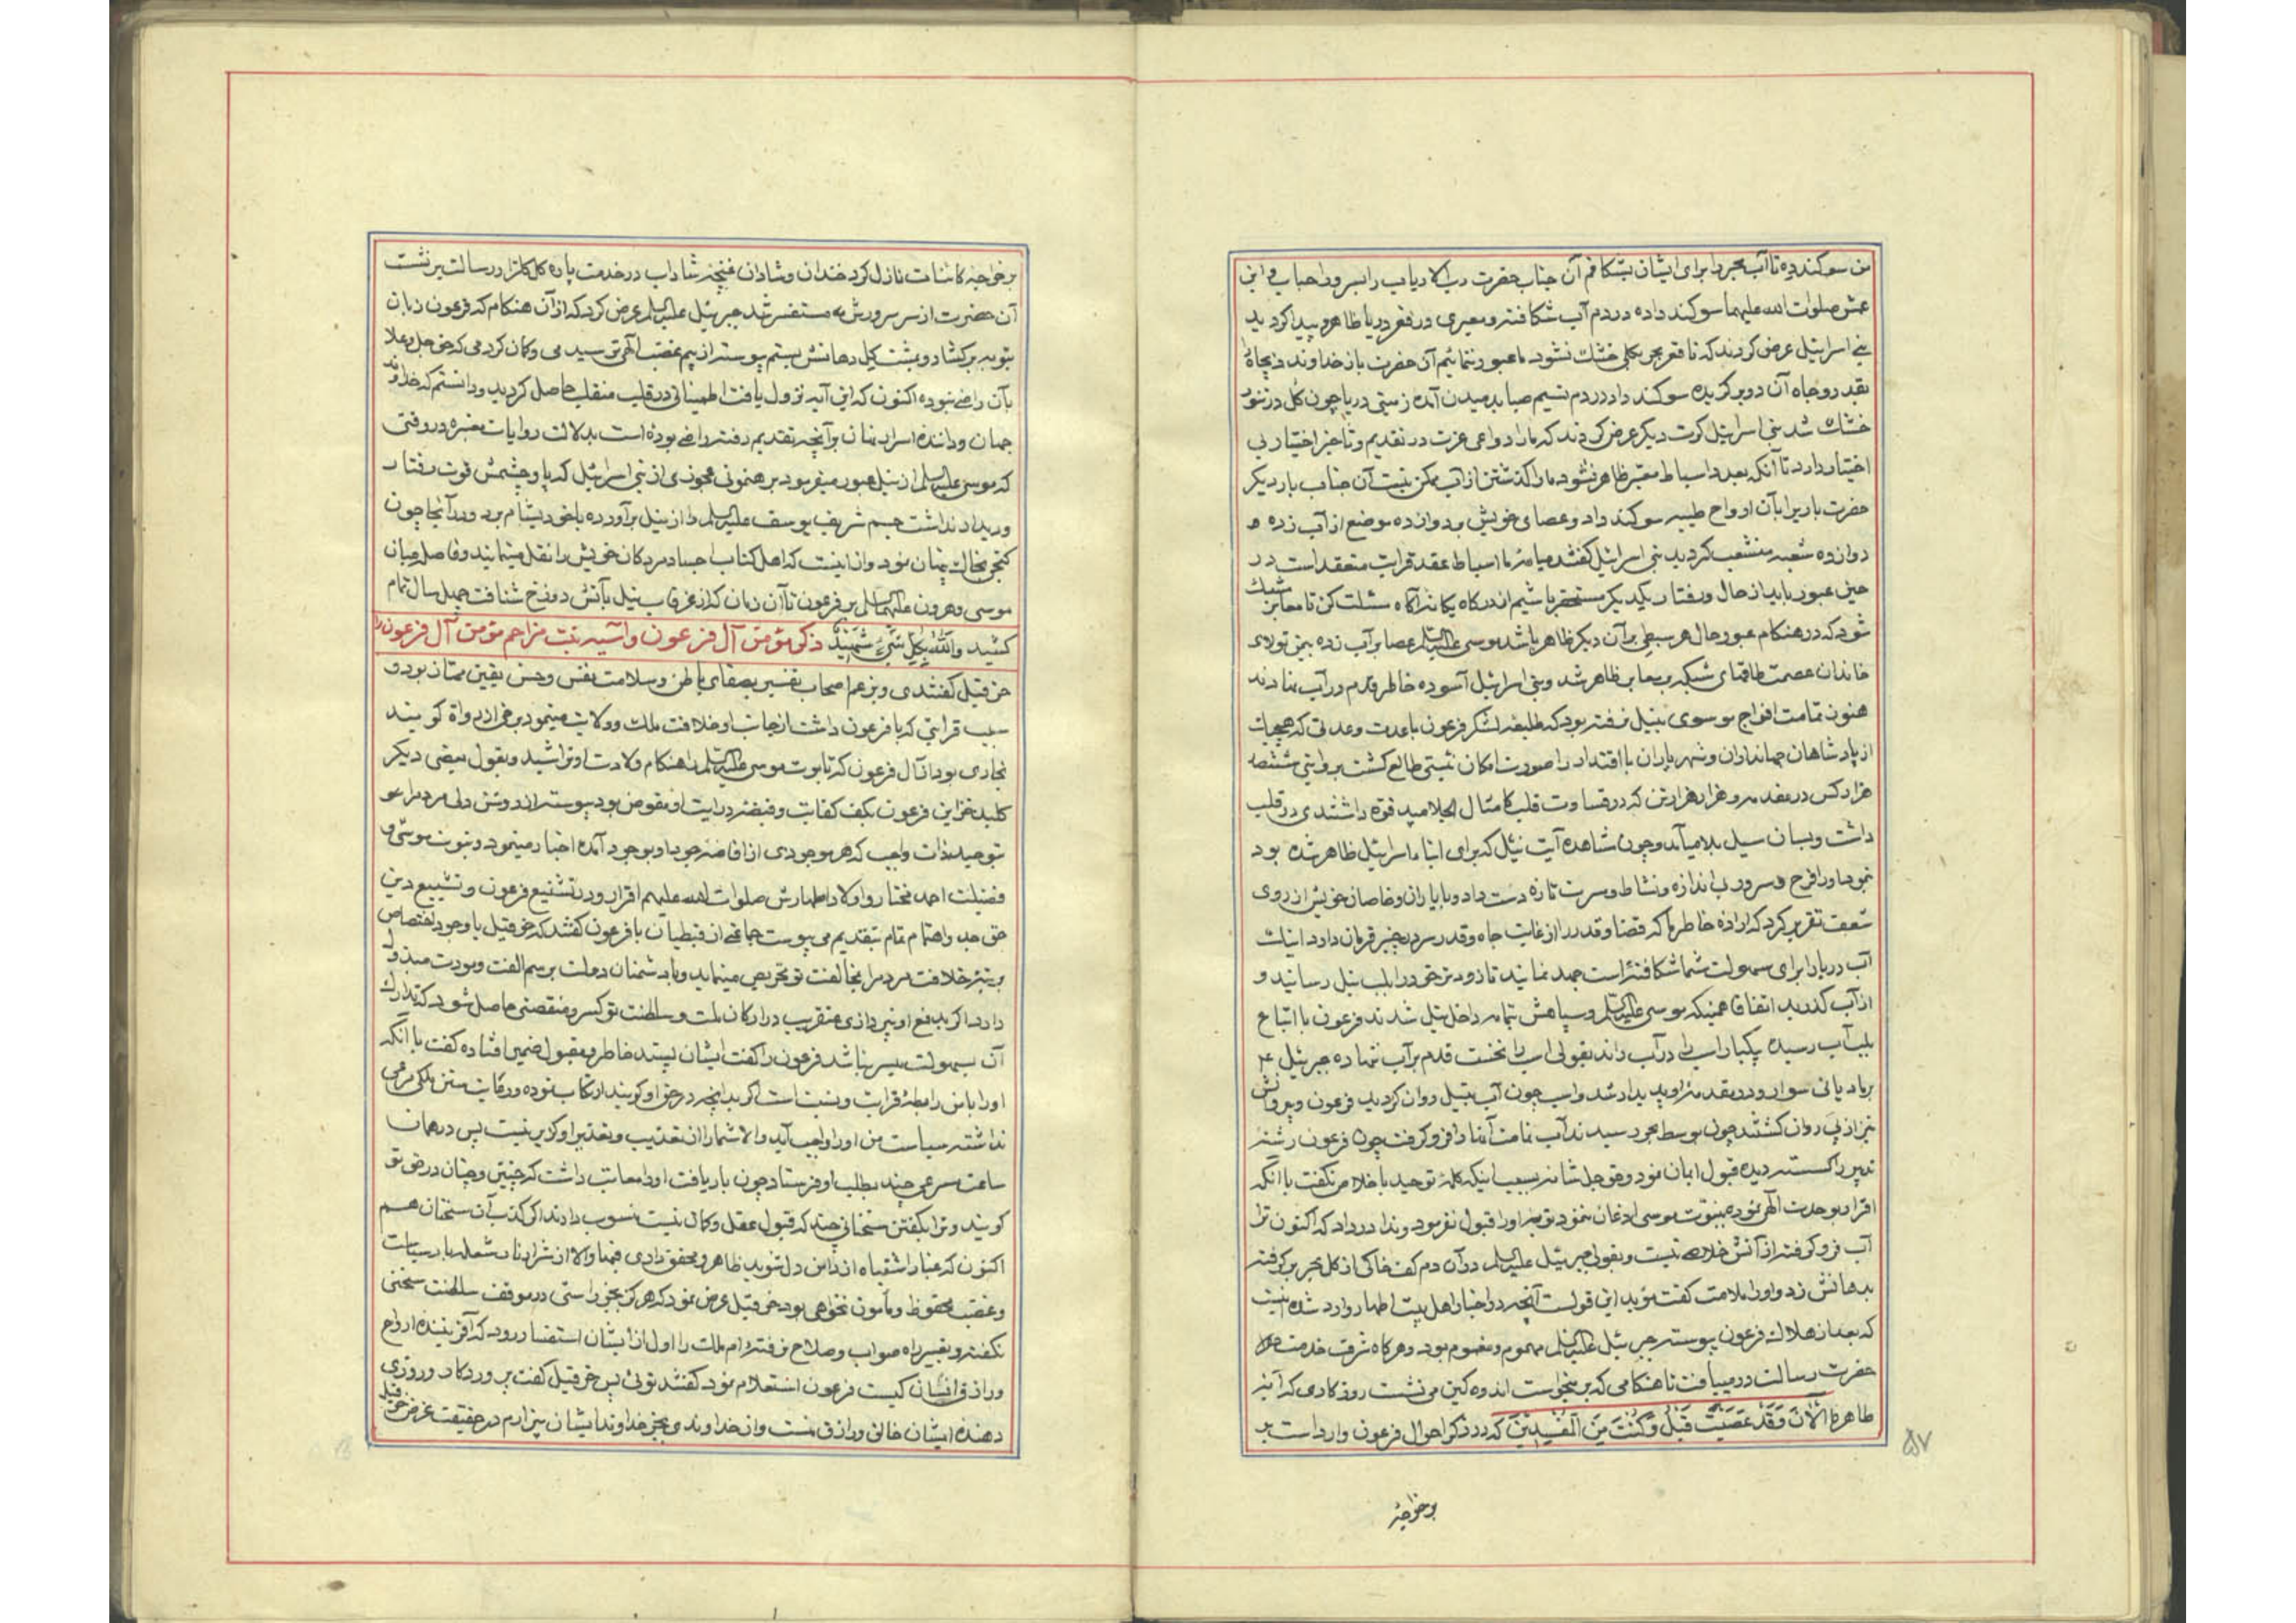 من سوکند ده تا آب بحر را برای ایشان بشکافم آن جناب حضرت رب الارباب را بسرور احباب و ابن
عمش صلوات الله علیهما سوکند داده در دم آب شکافته و معبری در قعر دریا ظاهر و پیدا کردید
بنی اسرائیل عرض کردند که تا قعر بحر بکلی خشک نشود ما عبور ننمائیم آن حضرت باز خداوند را بجاه
بقدر و جاه آن دو برکزیده سوکند داد در دم نسیم صبا بدمیدن آمده زمین دریا چون کل در تنور
خشک شد بنی اسرائیل کرت دیکر عرض کردند که ما را دواعی عزت در تقدیم و تاخیر اختیار بی
اختیار دارد تا آنکه بعدد اسباط معبر ظاهر نشود ما را کذشتن از آب ممکن نیست آن جناب بار دیکر
حضرت باریرا بآن ارواح طیبه سوکند داد و عصای خویش بر دوازده موضع از آب زده
دوازده شعبه منشعب کردید بنی اسرائیل کفتند میانه ما اسباط عقد قرابت منعقد است در
حین عبور باید از حال و رفتار یکدیکر مستحضر باشیم از درکاه یکانه آکاه مسئلت کن تا معابر شبک
شود که در هنکام عبور حال هر سبطی بر آن دیکر ظاهر باشد موسی علیه السلم عصا بر آب زده بیمن تولای
خاندان عصمت طاقهای شبکه بر معابر ظاهر شد و بنی اسرائیل آسوده خاطر قدم در آب نهادند
هنوز تمامت افواج موسوی بنیل نرفته بود که طلیعه لشکر فرعون با عدت و عدتی که هیچیک
از پادشاهان جهانداران و شهریاران با اقتدار را صورت امکان نبستی طالع کشت بروایتی ششصد
هزار کس در مقدمه و هزار هزار تن که در قساوت قلب کامثال الجلامید قوه داشتندی در قلب
داشت و بسان سیل بلا میآمد و چون مشاهده آیت نیل که برای ابناء اسرائیل ظاهر شده بود
نمود او را فرح و سرور بی اندازه و نشاط و مسرت تازه دست داد و با یاران و خاصان خویش از روی
شعف تقریر کرد که اراده خاطر ما که قضا و قدر را از غایت جاه و قدر سر در چنبر فرمان دارد اینک
آب دریا را برای سهولت شما شکافته است جهد نمایند تا زود تر خود را بلب نیل رسانید و
از آب کذرید اتفاقا همینکه موسی علیه السلم و سپاهش تمامه داخل نیل شدند فرعون با اتباع
بلب آب رسیده یکبار اسب را در آب راند بقولی اسب را نخست قدم بر آب ننهاده جبرئیل ع
بر مادیانی سوار و در مقدمه او پدیدار شد و اسب چون آب بنیل روان کردید فرعون و پیروانش
نیز از پی روان کشتند چون بوسط بحر رسیدند آب تمامت آنها را فرو کرفت چون فرعون رشته
تدبیر را کسسته دیده قبول ایمان نمود و حق جل شانه بسبب اینکه کلمه توحید باخلاص نکفت با آنکه
اقرار بوحدت الهی نمود بنبوت موسی اذعان ننمود توبه او را قبول نفرمود و ندا در داد که اکنون ترا
آب فرو کرفته از آتش خلاصی نیست و بقولی جبرئیل علیه السلم در آن دم کف خاکی از کل بحر بر کرفته
بدهانش زد و او را ملامت کفت مؤید این قول است آنچه در اخبار اهل بیت اطهار وارد شده اینست
که بعد از هلاک فرعون پیوسته جبرئیل علیه السلم مهموم و مغموم بود و هر کاه شرف خدمت
حضرت رسالت در مییافت تا هنکامی که بر میخواست اندوه کین می نشست روزکاری که آیه
طاهره الْآنَ وَقَدْ عَصَیْتَ قَبْلُ وَکُنْتَ مِنَ الْمُفْسِدِینَ که در ذکر احوال فرعون وارد است بر
بر خواجه
۵۷
بر خواجه کائنات نازل کرد خندان و شادان غنچه شاداب در خدمت پاره کل کلزار رسالت بر نشست
آن حضرت از سر سرورش مستفسر شد جبرئیل علیه السلم عرض کرد که از آن هنکام که فرعون زبان
بتوبه برکشاد و بمشت کل دهانش ببستم پیوسته از بیم غضب الهی ترسید می و کمان کرد می که حق جل و علا
بآن راضی نبوده اکنون که این آیه نزول یافت اطمینانی در قلب منقلب حاصل کردید و دانستم که خداوند
جهان و داننده اسرار نهان بر آنچه تقدیم رفته راضی بوده است بدلالت روایات معتبره در وقتی
که موسی علیه السلم از نیل عبور میفرمود برهنمونی عجوزی از بنی اسرائیل که پا و چشمش قوت رفتار
و دیدار نداشت جسم شریف یوسف علیه السلم را از نیل برآورده با خود بشام برد و در آنجا چون
کنجی بخاک پنهان نمود و از اینست که اهل کتاب اجساد مردکان خویش را نقل مینمایند و فاصله میان
موسی و هرون علیهما السلم بر فرعون تا آن زمان که از غرقاب نیل بآتش دوزخ شتافت چهل سال تمام
کشید والله بکل شیء شهید ذکر مؤمن آل فرعون و آسیه بنت مزاحم مؤمن آل فرعون را
حزقیل کفتندی و بزعم اصحاب تفسیر بصفای باطن و سلامت نفس و حسن یقین ممتاز بود و
بسبب قرابتی که با فرعون داشت از جانب او خلافت ملک و ولایت مینمود برخی از رواة کویند
نجاری بود از آل فرعون که تابوت موسی علیه السلم را هنکام ولادت او تراشید و بقول بعضی دیکر
کلید خزاین فرعون بکف کفایت و قبضه درایت او مفوض بود پیوسته از روشن دلی مردم را
بتوحید ذات واجب که هر موجودی از افاضه جود او بوجود آمده اخبار مینمود و بنبوت موسی و
فضیلت احمد مختار و اولاد اطهارش صلوات الله علیهم اقرار و در تشنیع فرعون و تشییع دین
حق جد و اهتمام تمام بتقدیم می پیوست جماعتی از قبطیان با فرعون کفتند که حزقیل با وجود اختصاص
برتبه خلافت مردم را بمخالفت تو تحریص مینماید و با دشمنان دولت برسم الفت و مودت مبذول
دارد اکر بدفع او نپردازی عنقریب در ارکان ملت و سلطنت تو کسر و منقصتی حاصل شود که تدارک
آن بسهولت میسر نباشد فرعون را کفت ایشان پسند خاطر و مقبول ضمیر افتاده کفت با آنکه
او را با من رابطه قرابت و نسبت است اکر بدانچه در حق او کویند ارتکاب نموده و رعایت سنن ملکی مرعی
نداشته سیاست من او را واجب آید و الا شما را از تعذیب و تعذیر او کزیر نیست پس در همان
ساعت سرعی چند بطلب او فرستاد چون باریافت او را معاتب داشت که چنین و چنان در حق تو
کویند و ترا بکفتن سخنانی چند که قبول عقل و کمال نیست منسوب دارند اکر کذب آن سخنان هم
اکنون که غبار اشتباه از دامن دل نشوید ظاهر و محقق داری فبها و الا از شرار نار شعله بار سیاست
و غضب محفوظ و مأمون نخواهی بود حزقیل عرض نمود که هرکز بجز راستی در موقف سلطنت سخنی
نکفته و بغیر راه صواب و صلاح نرفته ام ملک را اول از ایشان استفسار رود که آفریننده ارواح
و رازق انسان کیست فرعون استعلام نمود کفتند توئی پس حزقیل کفت پروردکار و روزی
دهنده ایشان خالق و رازق منست و از خداوندی بجز خداوند ایشان بیزارم در حقیقت غرض حزقیل